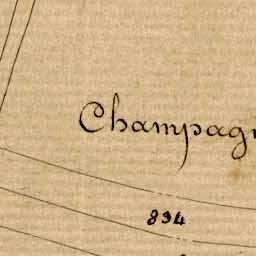 Champagn
834